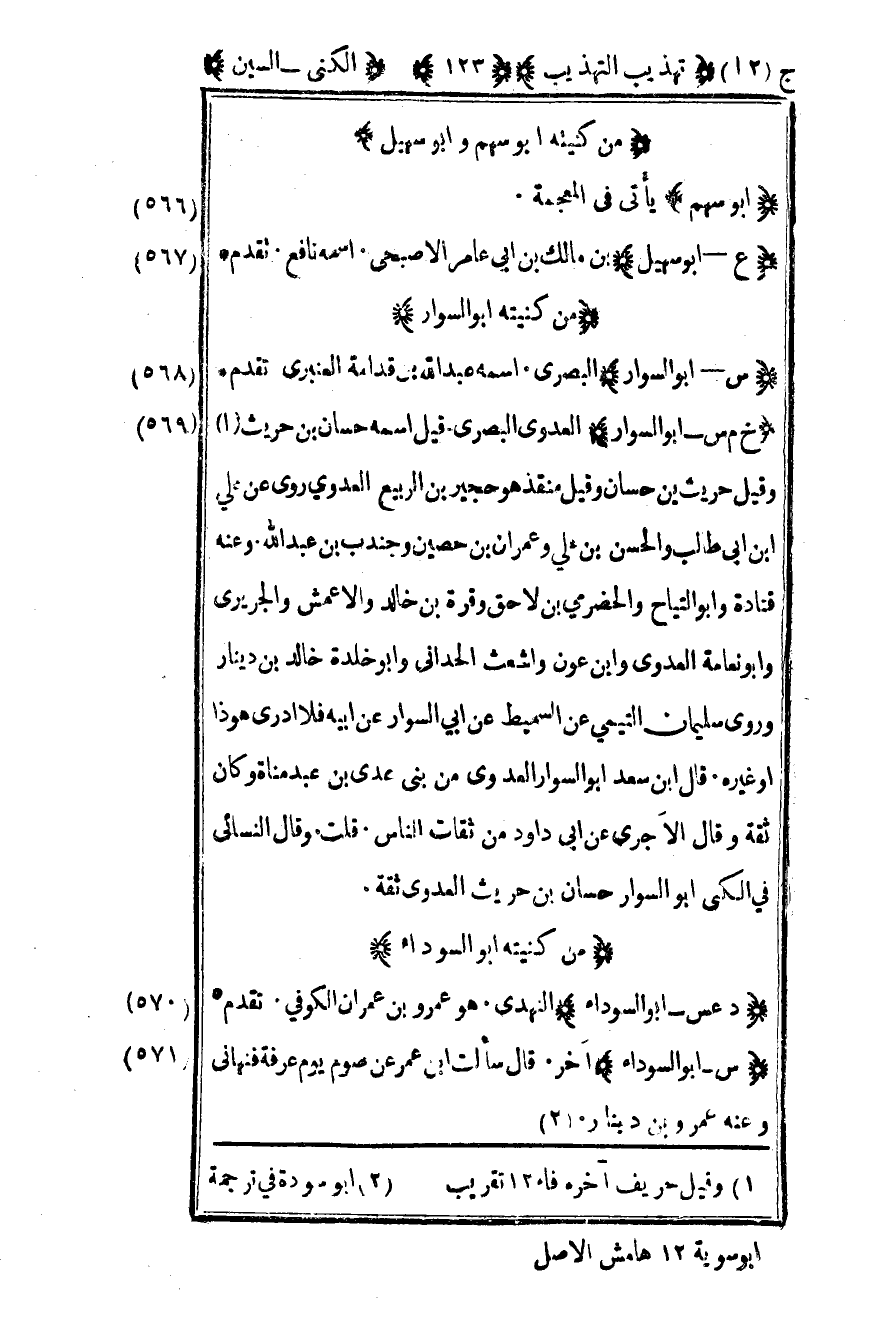 ج (١٢) ﴿ تهذيب التهذيب ﴾ ﴿ ١٢٣ ﴾ ﴿ الكنى ــ السين ﴾
﴿ من كنيته ابو سهم و ابو سهيل ﴾
﴿ ابو سهم ﴾ يأتى فى المعجمة ٠ (٥٦٦)
﴿ ع — ابو سهيل ﴾ بن مالك بن ابى عامر الاصبحى ٠ اسمه نافع ٠ تقدم * (٥٦٧)
﴿ من كنيته ابو السوار ﴾
﴿ س — ابو السوار ﴾ البصرى ٠ اسمه عبد الله بن قدامة العنبرى تقدم * (٥٦٨)
﴿ خ م س ــ ابو السوار ﴾ العدوى البصرى ٠ قيل اسمه حسان بن حريث (١) (٥٦٩)
وقيل حريث بن حسان وقيل منقذ هو حجير بن الربيع العدوي روى عن علي
ابن ابى طالب والحسن بن علي وعمران بن حصين وجندب بن عبد الله ٠ وعنه
قتادة وابو التياح والحضرمي بن لاحق وقرة بن خالد والاعمش والجريرى
وابو نعامة العدوى وابن عون واشعث الحدانى وابو خلدة خالد بن دينار
وروى سليمان التيمي عن السميط عن ابي السوار عن ابيه فلا ادرى هو ذا
او غيره ٠ قال ابن سعد ابو السوار العدوى من بنى عدى بن عبد مناة وكان
ثقة و قال الآجري عن ابى داود من ثقات الناس ٠ قلت ٠ وقال النسائى
في الكنى ابو السوار حسان بن حريث العدوى ثقة ٠
﴿ من كنيته ابو السوداء ﴾
﴿ د عس ــ ابو السوداء ﴾ النهدى ٠ هو عمرو بن عمران الكوفي ٠ تقدم * (٥٧٠)
﴿ س ــ ابو السوداء ﴾ آخر ٠ قال سألت ابن عمر عن صوم يوم عرفة فنهانى (٥٧١)
و عنه عمرو بن دينار ٠ (٢)
١) وقيل حريف آخره فاء ١٢ تقريب (٢) ابو سودة في ترجمة
ابوسوية ١٢ هامش الاصل